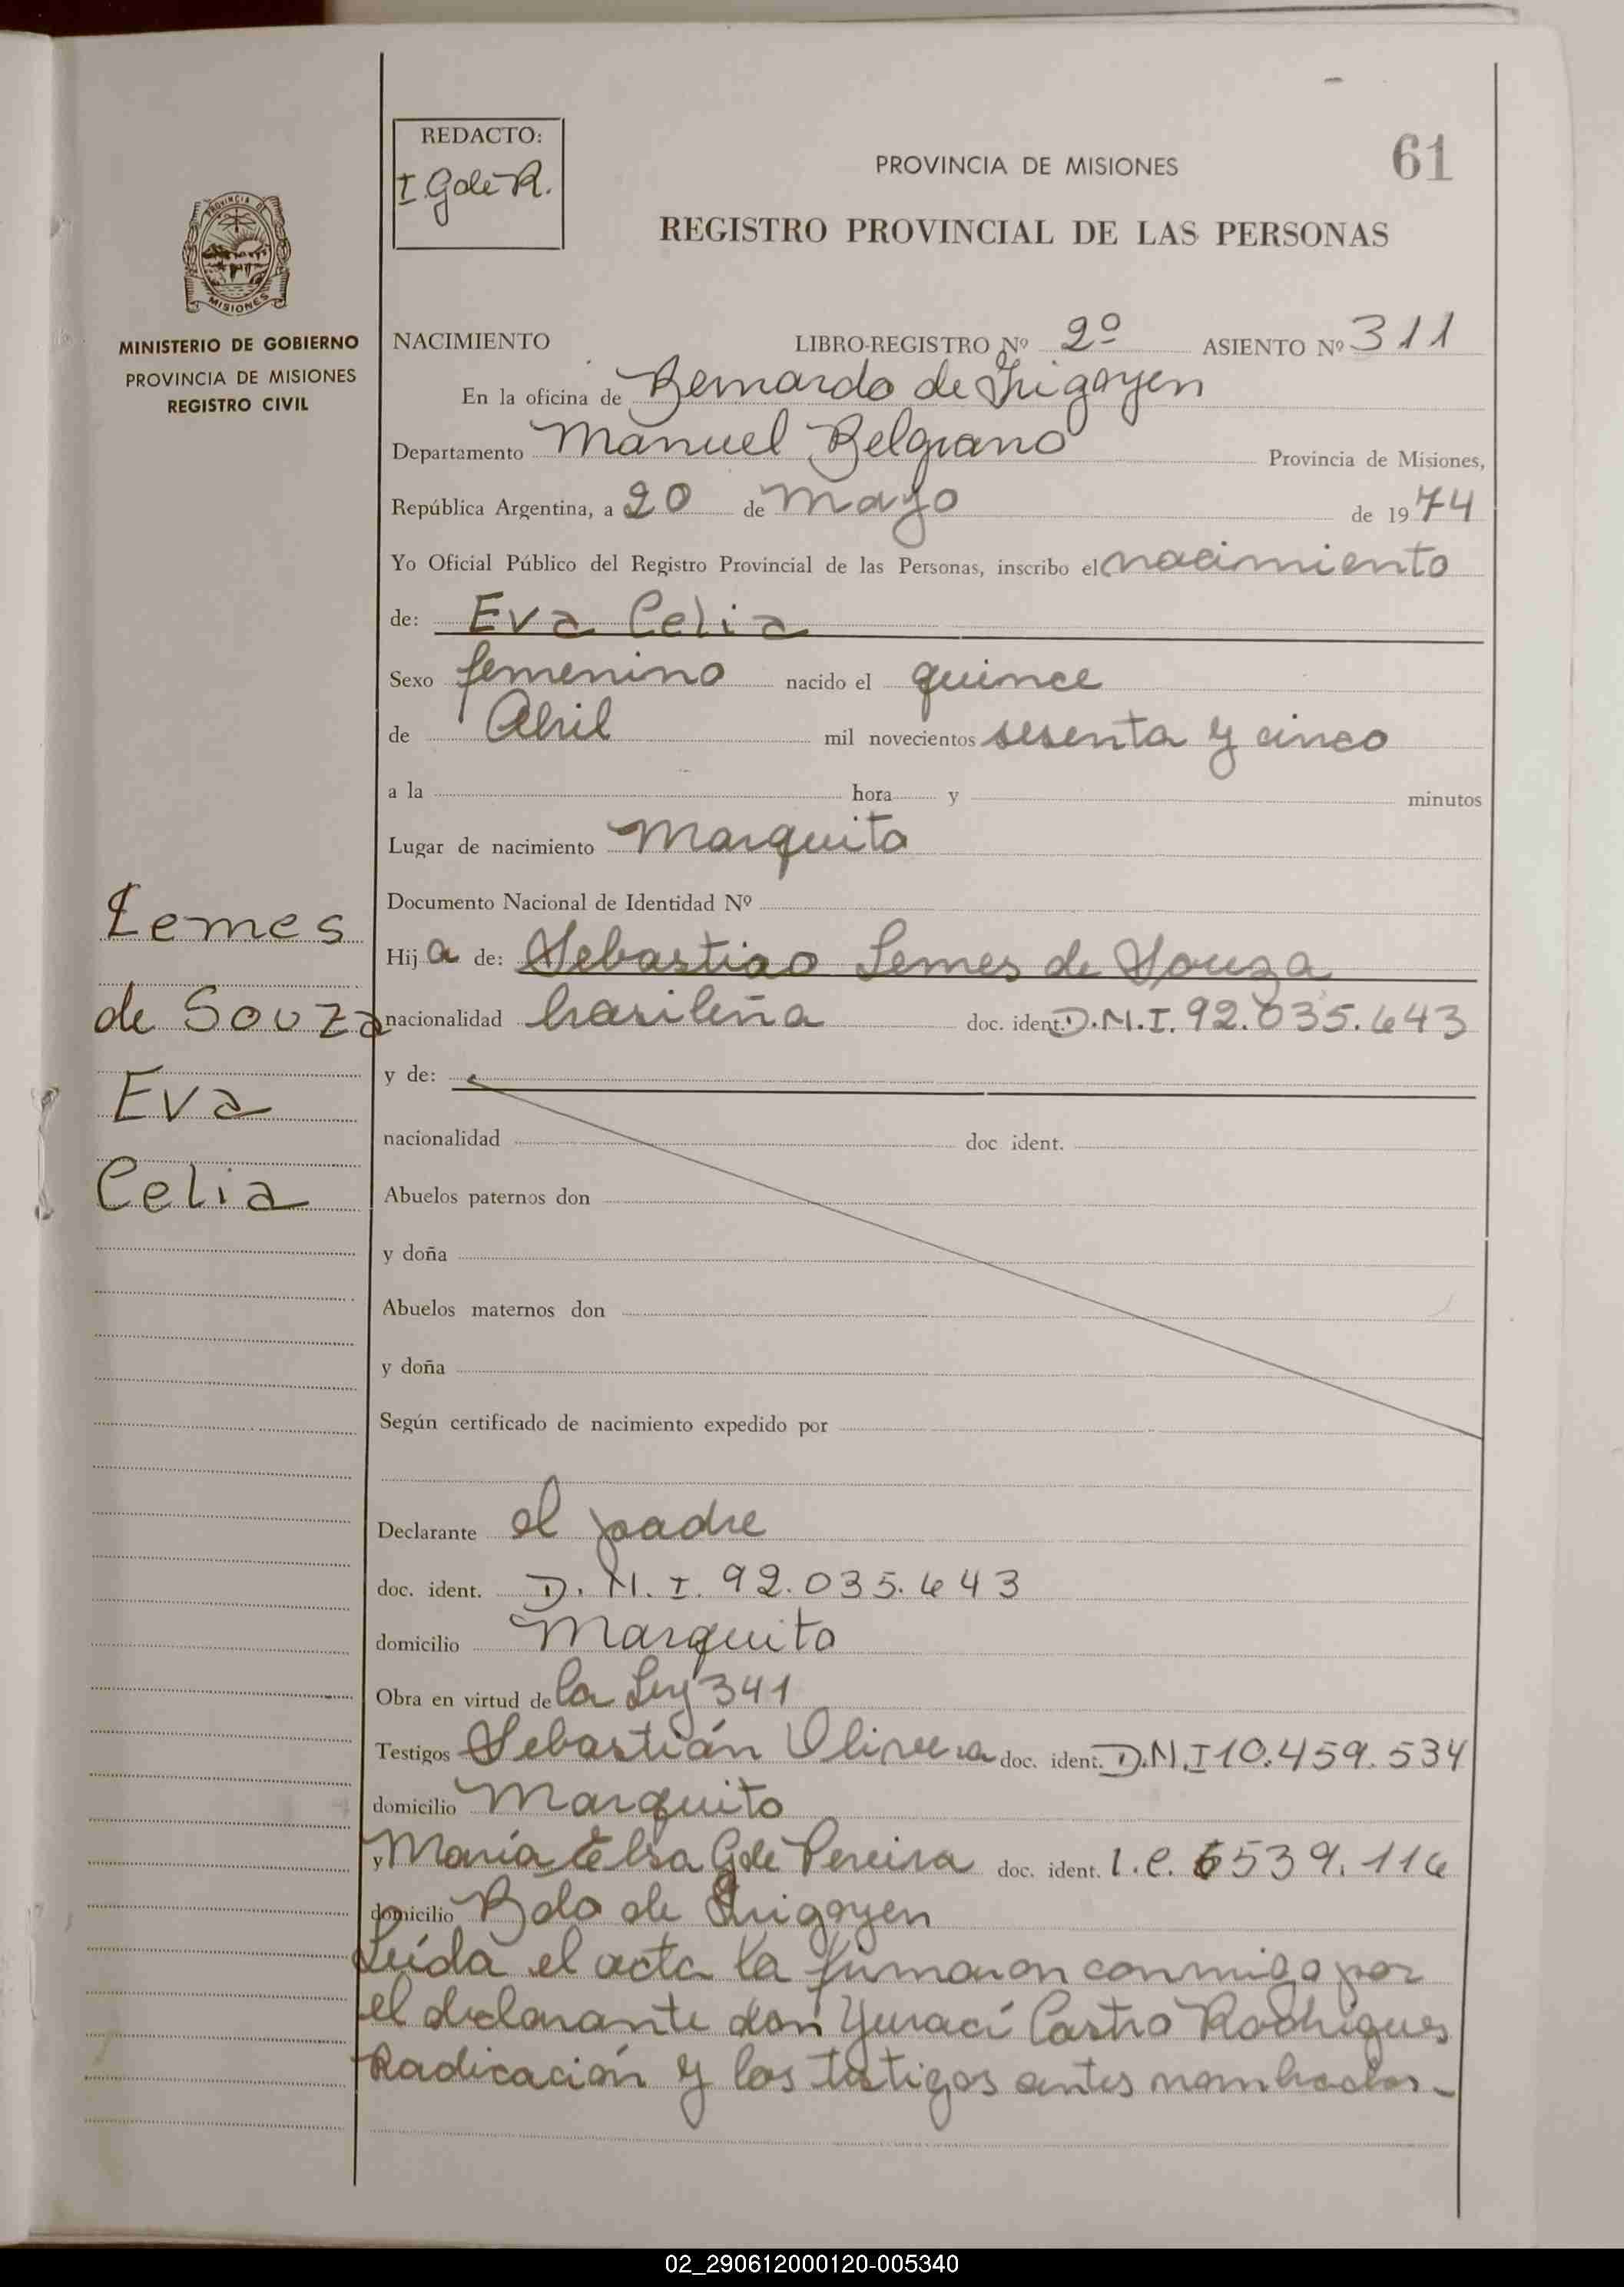 REDACTO:
I. G de R.
PROVINCIA DE MISIONES
61
REGISTRO PROVINCIAL DE LAS PERSONAS
PROVINCIA DE
MISIONES
MINISTERIO DE GOBIERNO
PROVINCIA DE MISIONES
REGISTRO CIVIL
NACIMIENTO LIBRO-REGISTRO Nº 2º ASIENTO Nº 311
En la oficina de Bernardo de Irigoyen
Departamento Manuel Belgrano Provincia de Misiones,
República Argentina, a 20 de Mayo de 1974
Yo Oficial Público del Registro Provincial de las Personas, inscribo el nacimiento
de: Eva Celia
Sexo femenino nacido el quince
de Abril mil novecientos sesenta y cinco
a la hora y minutos
Lugar de nacimiento Marquito
Documento Nacional de Identidad Nº
Lemes
de Souza
Eva
Celia
Hija de: Sebastiao Lemes de Souza
nacionalidad brasileña doc. ident. D.N.I. 92.035.643
y de:
nacionalidad doc ident.
Abuelos paternos don
y doña
Abuelos maternos don
y doña
Según certificado de nacimiento expedido por
Declarante el padre
doc. ident. D.N.I. 92.035.643
domicilio Marquito
Obra en virtud de la Ley 341
Testigos Sebastián Olivera doc. ident. D.N.I 10.459.534
domicilio Marquito
y María Elsa G de Pereira doc. ident. L.C. 6539.116
domicilio Bdo de Irigoyen
Leída el acta la firmaron conmigo por
el declarante don Yuraci Castro Rodrigues
Radicación y los testigos antes nombrados.-
02_290612000120-005340